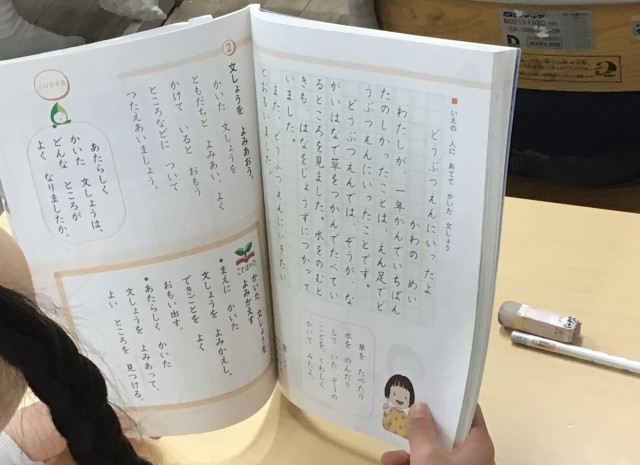 ■ いえの 人に あてて かいた 文しょう
どうぶつえんにいったよ
かわの めい
わたしが、一年かんでいちばん
たのしかったことは、えん足でど
うぶつえんにいったことです。
どうぶつえんでは、ぞうが、な
がいはなで草をつかんでたべてい
るところを見ました。水をのむと
きも、はなをじょうずにつかって
いました。
また、どうぶつえんにいきたい
とおもいました。
草を たべたり
水を のんだり
して いた ぞうの
ことを、くわしく
かいて みたよ。
② 文しょうを よみあおう。
かいた 文しょうを
ともだちと よみあい、よく
かけて いると おもう
ところなどに ついて
つたえあいましょう。
あたらしく
かいた 文しょうは、
どんな ところが
よく なりましたか。
かいた 文しょうを
よみかえす
●まえに かいた
文しょうを よみかえし、
できごとを よく
おもい出す。
●あたらしく かいた
文しょうを よみあって、
よい ところを 見つける。